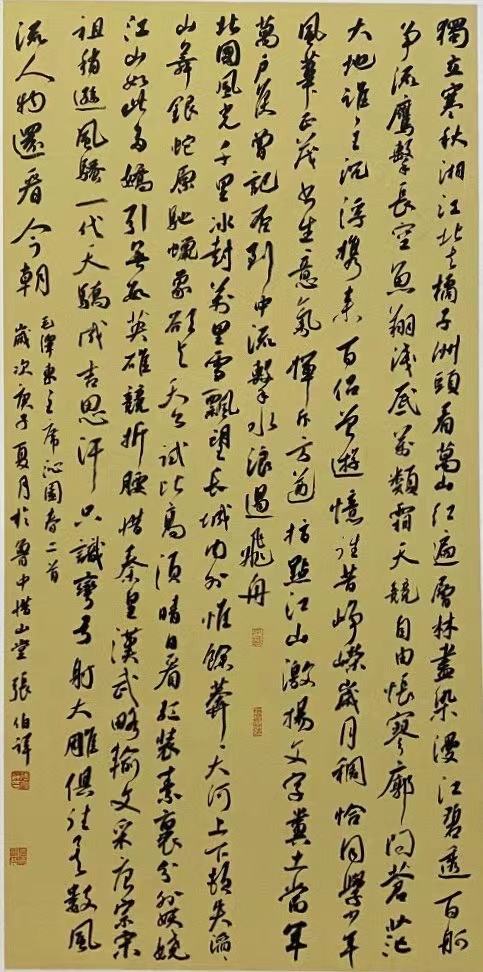 獨立寒秋湘江北去橘子洲頭看萬山红遍層林盡染漫江碧透百舸
争流鹰擊長空魚翔淺底萬類霜天競自由悵寥廓问蒼茫
大地誰主沉浮携来百侣曾遊憶往昔峥嵘歲月稠恰同學少年
風華正茂书生意氣揮斥方遒指點江山激揚文字糞土當年
萬户侯曾記否到中流擊水浪遏飛舟
北國風光千里冰封萬里雪飄望長城内外惟餘莽々大河上下頓失滔々
山舞銀蛇原馳蠟象欲与天公試比高須晴日看红装素裹分外妖娆
江山如此多嬌引無數英雄競折腰惜秦皇漢武略输文采唐宗宋
祖稍遜風騷一代天驕成吉思汗只識彎弓射大雕俱往矣數風
流人物還看今朝
毛澤東主席沁園春二首
歲次庚子夏月於魯中山堂張伯